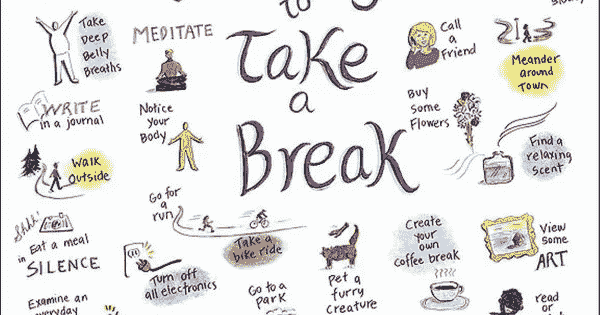 to
Take
a
Break
Take
Deep
Belly
Breaths
MEDITATE
Call
a
Friend
Meander
around
Town
WRITE
in a journal
Notice
your
Body
Buy
Some
Flowers
Find a
relaxing
scent
Walk
Outside
Go for
a
run
Take a
bike ride
Shhh!
Eat a meal
in SILENCE
Turn off
all electronics
Pet a
furry
Creature
Create
your
own
coffee break
View
some
ART
Examine an
everyday
Go to a
park
read
or